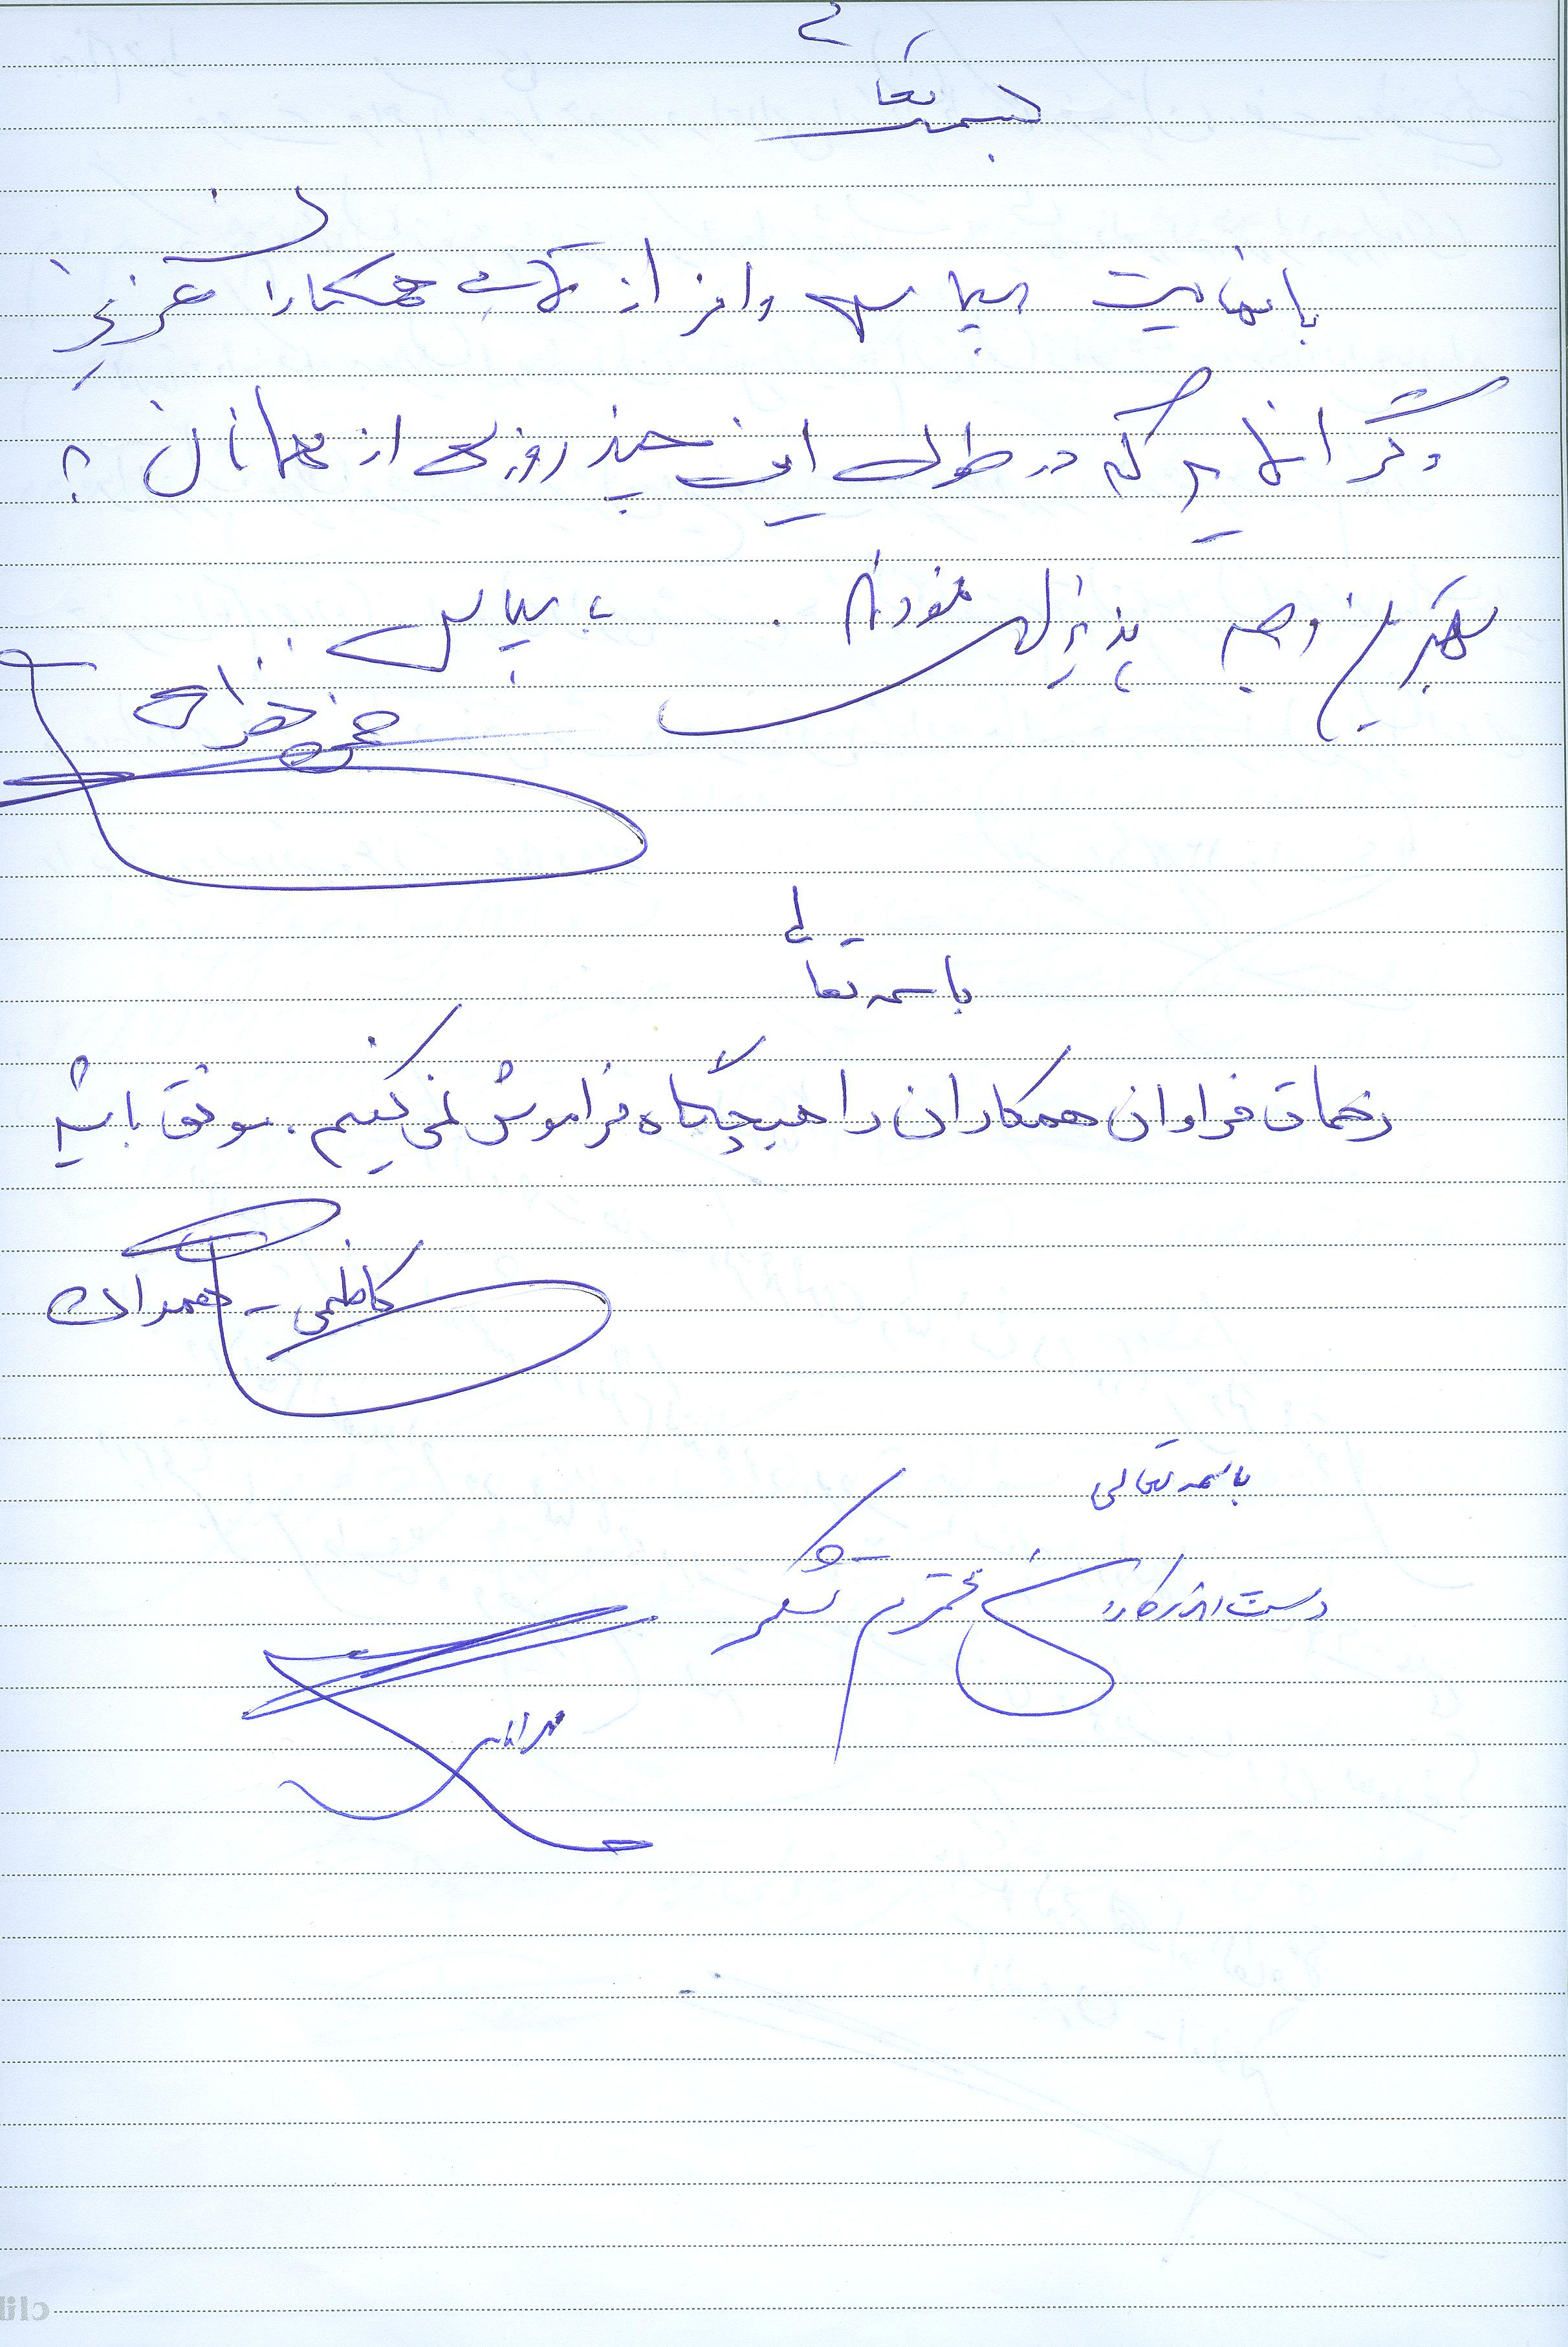 بسمه تعالی
با نهایت سپاس وافر از کلیه همکاران عزیز
و گرانمایه که در طول این چند روزی از مهمانان به
بهترین وجه پذیرایی نمودند. با سپاس
باسمه تعالی
زحمات فراوان همکاران را هیچگاه فراموش نمی کنیم. موفق باشید
کاظمی - همدان
باسمه تعالی
دست اندرکاران محترم متشکرم